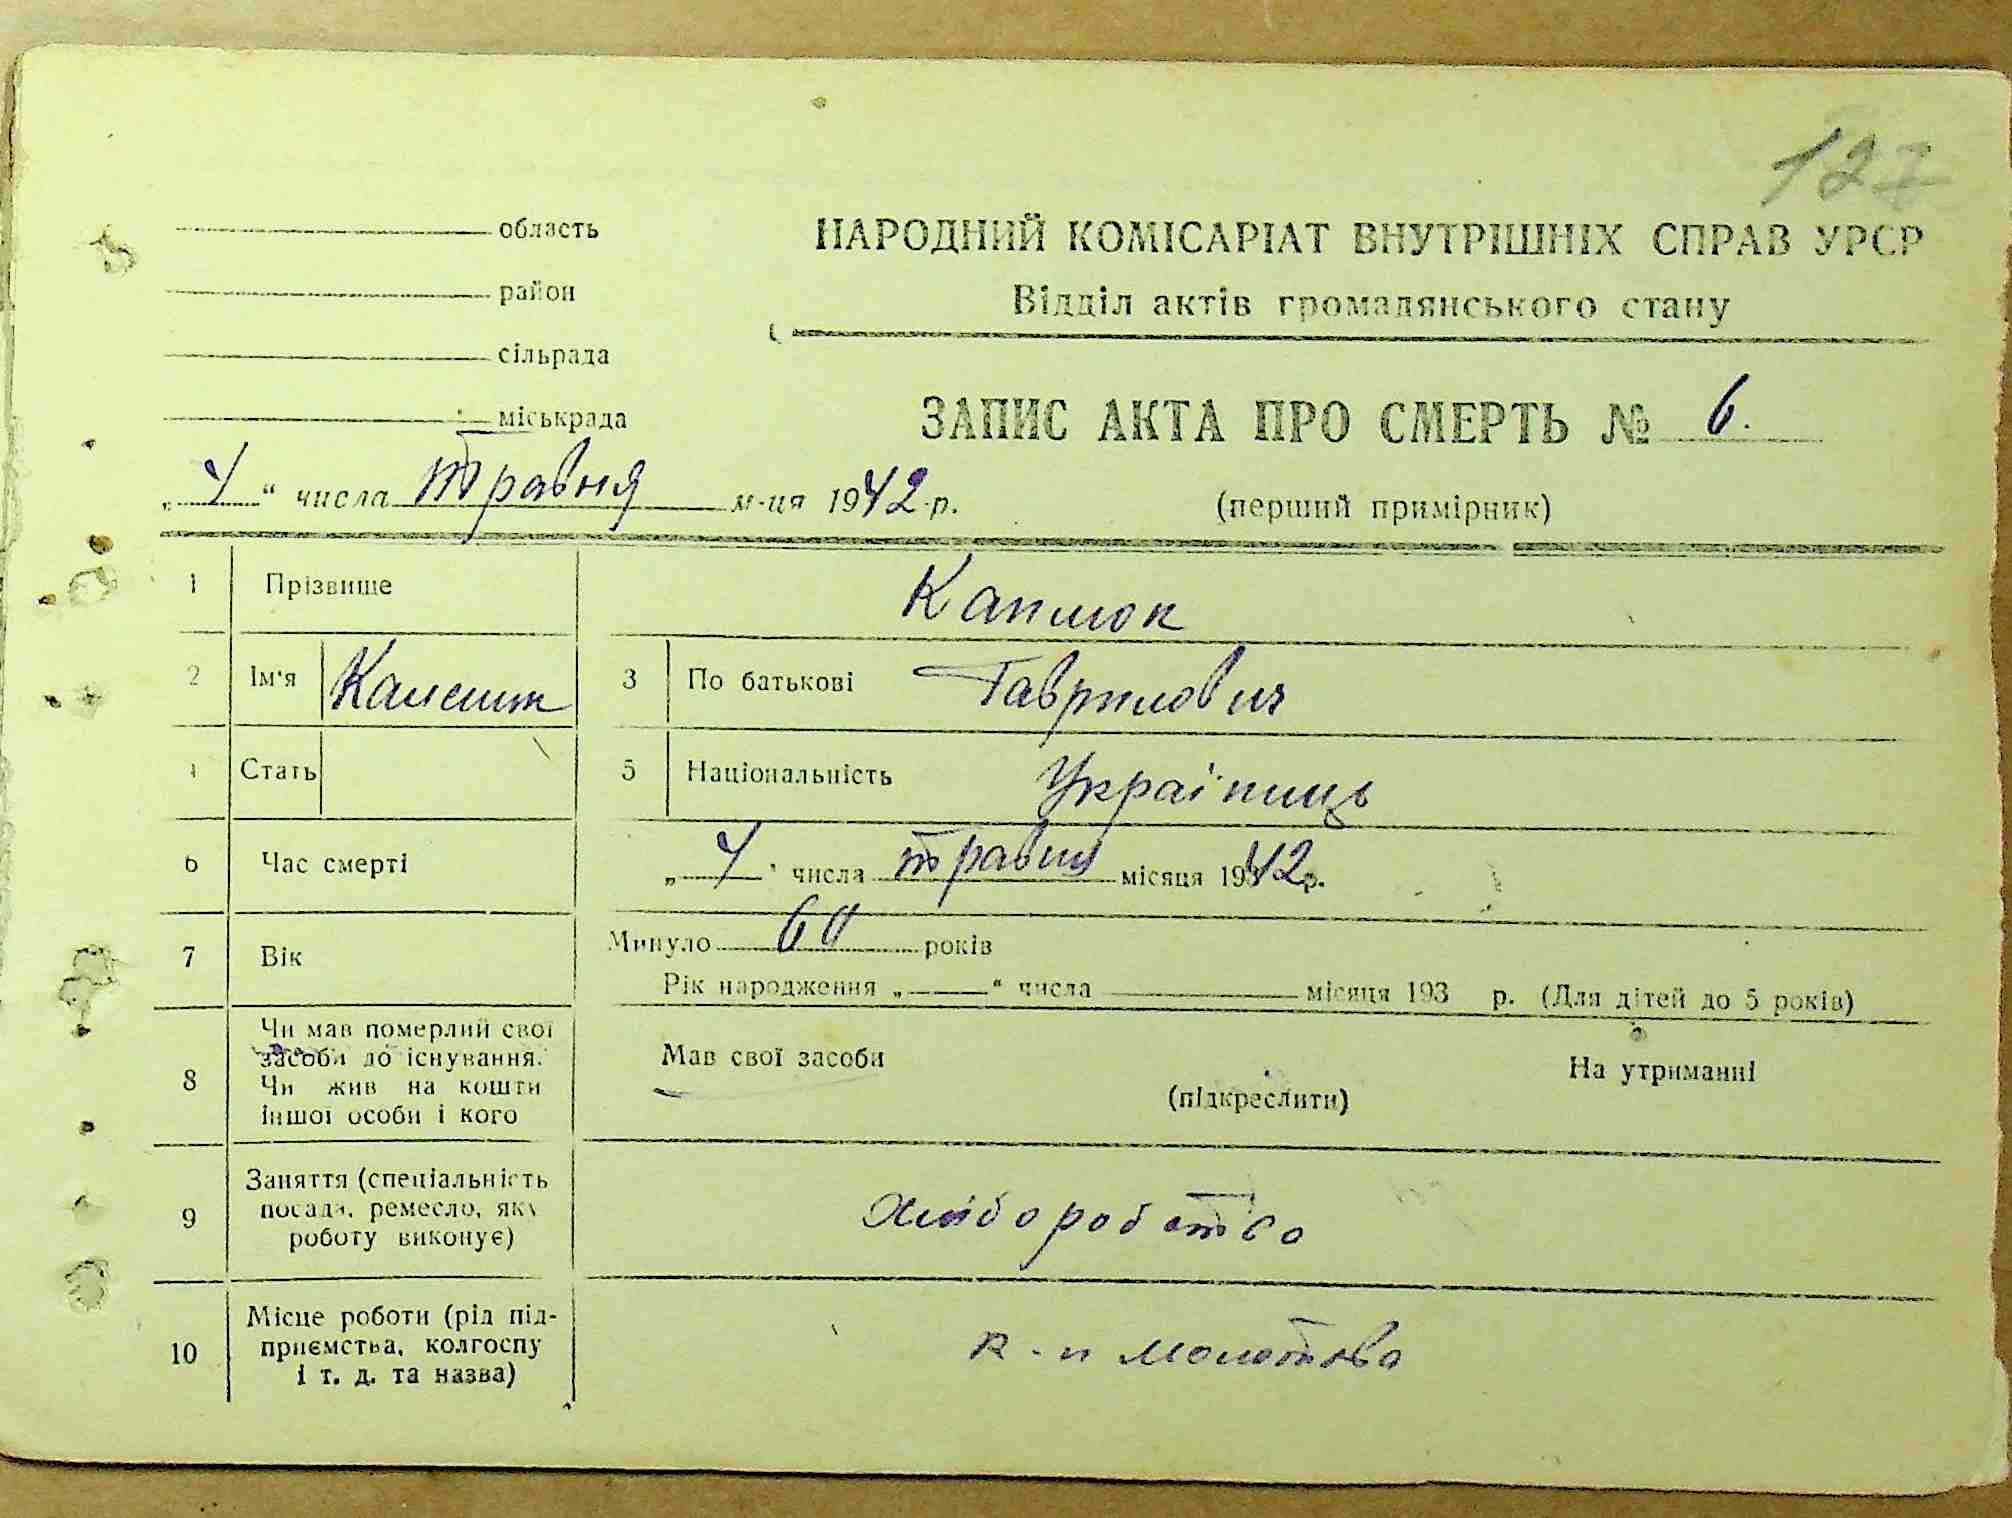 127
область
НАРОДНИЙ КОМІСАРІАТ ВНУТРІШНІХ СПРАВ УРСР
район
Відділ актів громадянського стану
сільрада
міськрада
ЗАПИС АКТА ПРО СМЕРТЬ № 6.
„ 4 “ числа травня м-ця 1942 р.
(перший примірник)
1 Прізвище
2 Ім'я
3 По батькові Гаврилович
4 Стать
5 Національність Українець
6 Час смерті „ 4 “ числа травня місяця 1942 р.
7 Вік Минуло 60 років
Рік народження „ “ числа місяця 193 р. (Для дітей до 5 років)
8 Чи мав померлий свої
засоби до існування.
Чи жив на кошти
іншої особи і кого
Мав свої засоби
(підкреслити)
На утриманні
9 Заняття (спеціальність
посада, ремесло, яку
роботу виконує)
Хліборобство
10 Місце роботи (рід під-
приємства, колгоспу
і т. д. та назва)
к-п Молотова